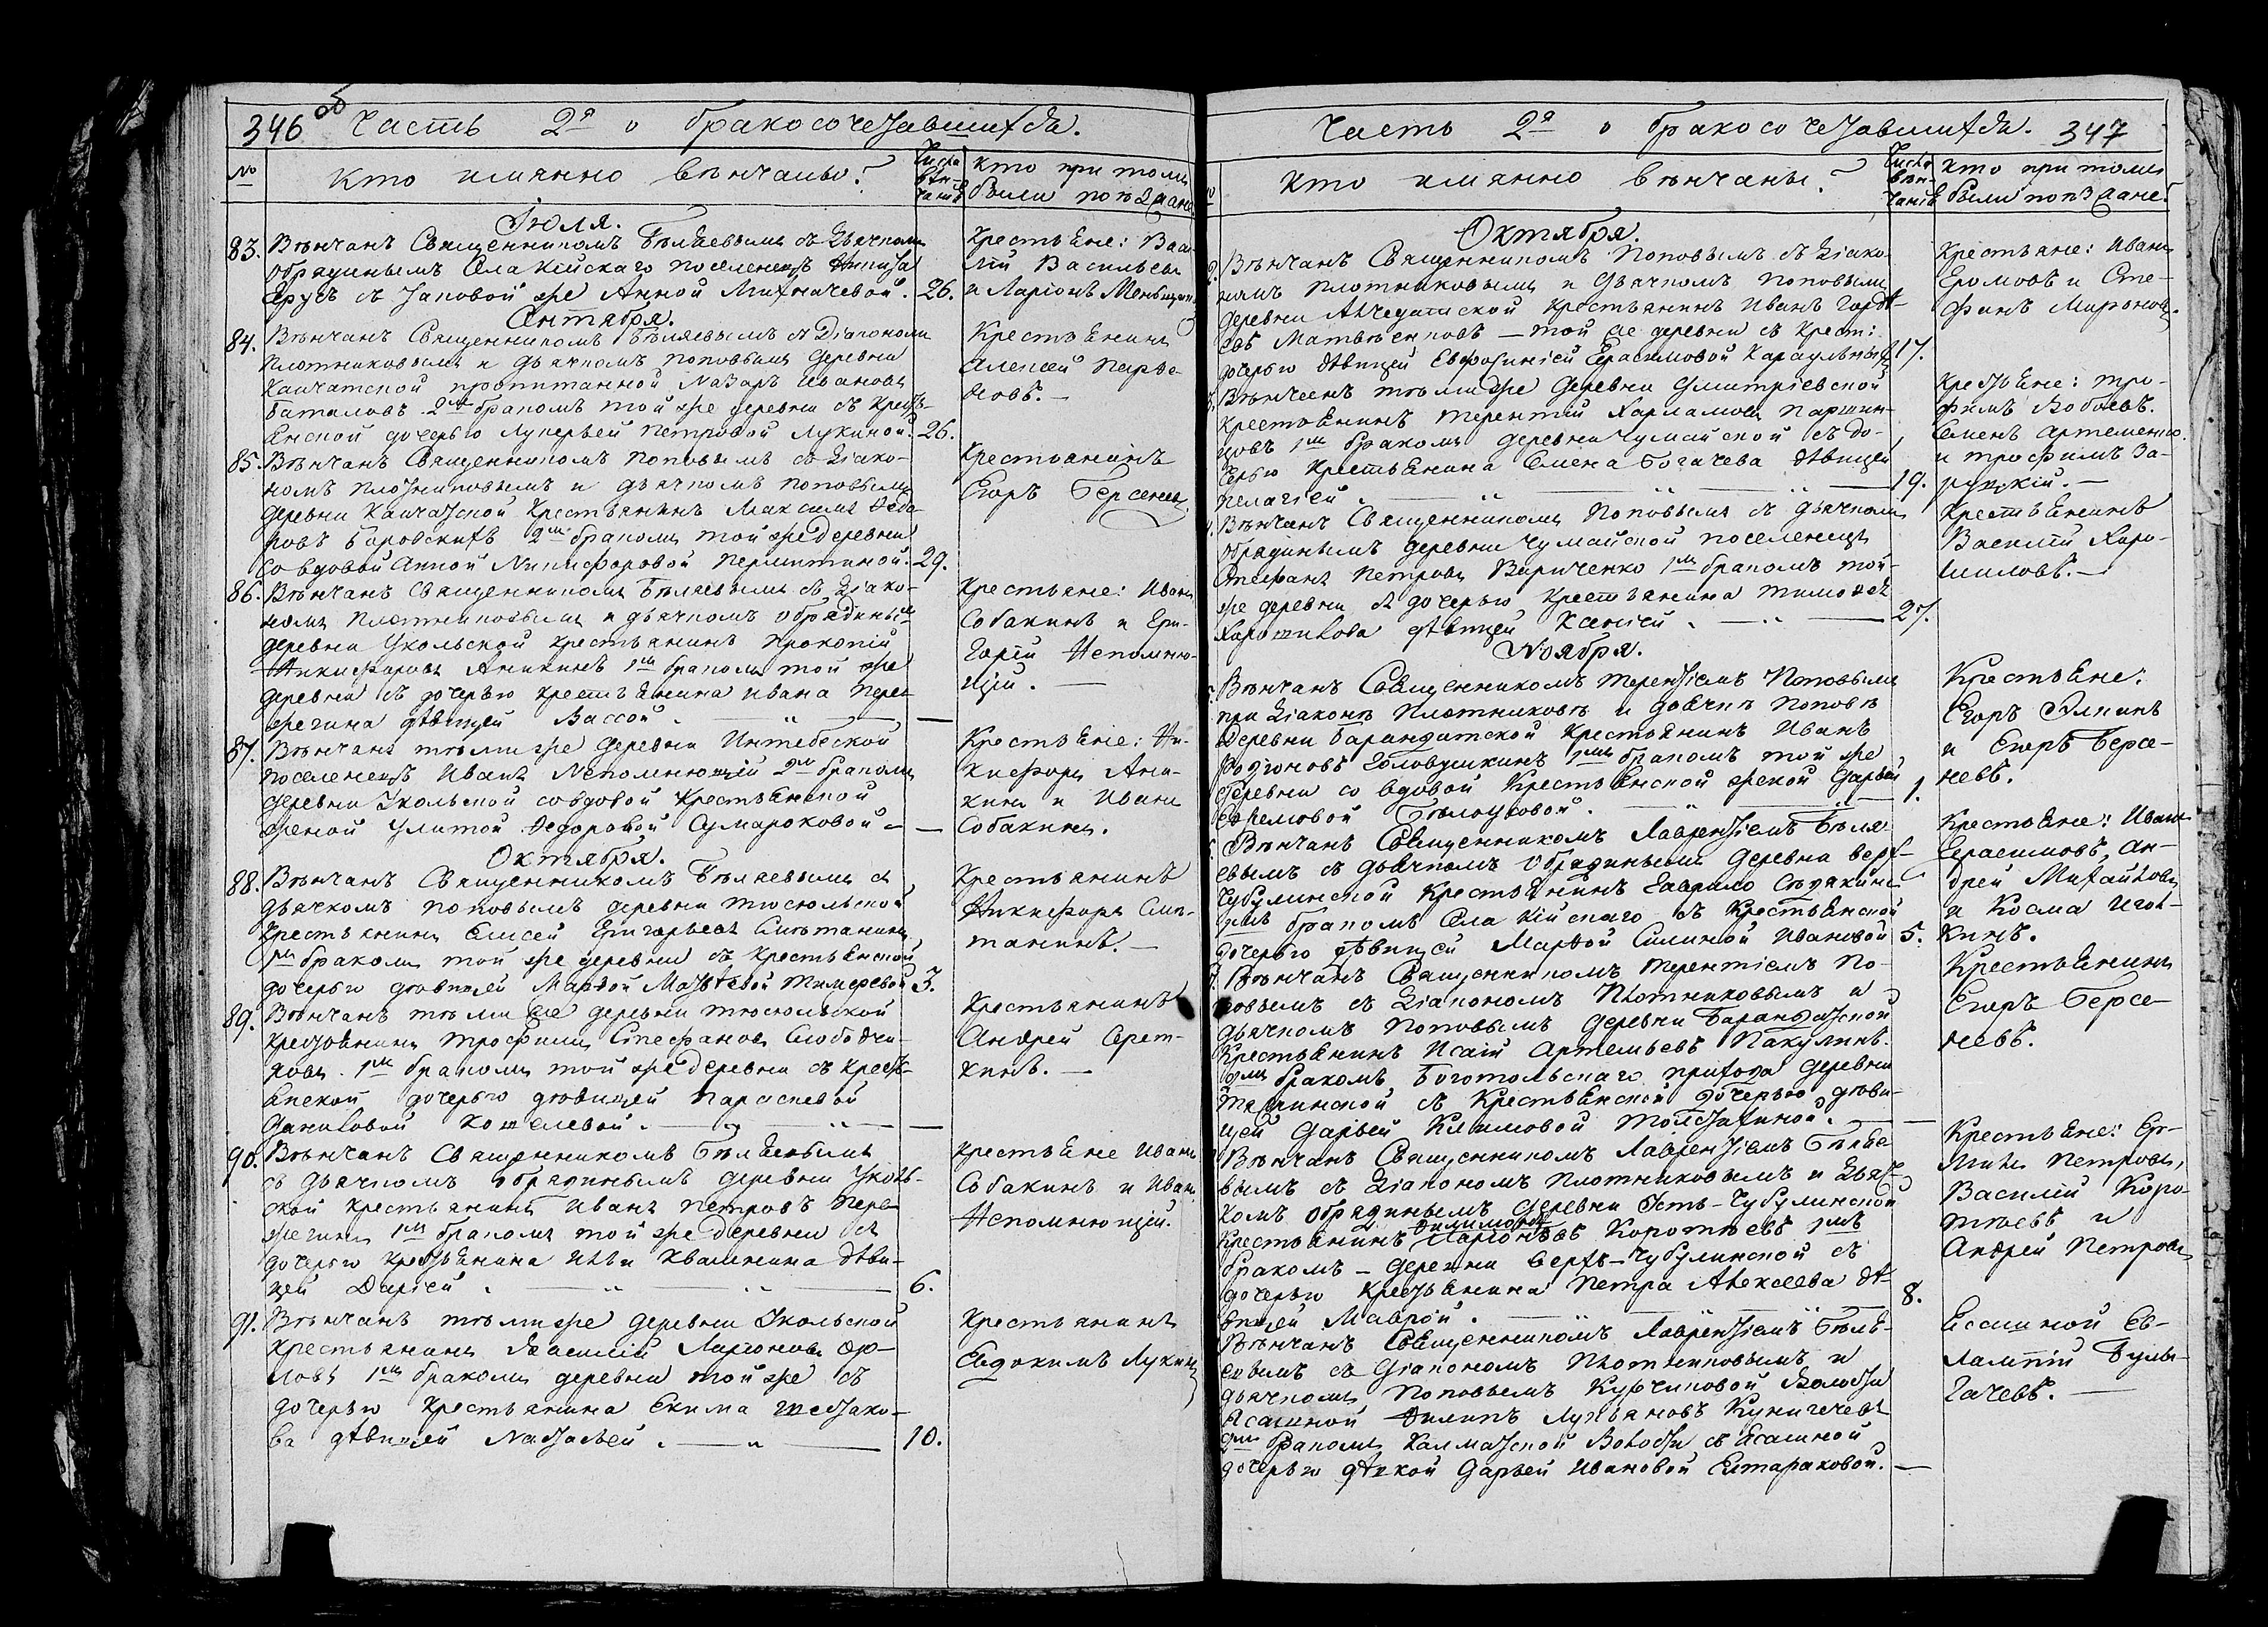 346 об Часть 2я о бракосочетавшихся.
№
Кто имянно вѣнчаны?
Число
вѣн-
чанiя
кто при томъ
были поѣзжане
Iюля.
83. Вѣнчанъ Священникомъ Бѣляевымъ съ дьячкомъ
Обрядинымъ Села Кiйскаго поселенецъ
съ таковой же Анной Михначевой. 26.
Крестьяне: Васи-
лiй Васильевъ
и Ларiонъ Меньщик
Сентября.
84. Вѣнчанъ Священникомъ Бѣляевымъ съ Дiакономъ
Плотниковымъ и дьячкомъ Поповымъ деревни
Камчатской пропитанной Назаръ Ивановъ
Баталовъ 2мъ бракомъ той же деревни съ кресть-
янской дочерью Лукерьей Петровой Лукиной. 26.
Крестьянинъ
Алексей Парфе-
новъ.
85. Вѣнчанъ Священникомъ Поповымъ съ Дiако-
номъ Плотниковымъ и дьячкомъ Поповымъ
деревни Камчатской Крестьянинъ Максимъ Федо-
ровъ Боровскихъ 2мъ бракомъ той же деревни
со вдовой Анной Никифоровой Пермитиной. 29.
Крестьянинъ
Егоръ Берсенев
86. Вѣнчанъ Священникомъ Бѣляевымъ съ Дiако-
номъ Плотниковымъ и дьячкомъ Обрядинымъ
деревни Укольской крестьянинъ Прокопiй
Никифоровъ Аникинъ 1мъ бракомъ той же
деревни съ дочерью крестьянина Ивана Пере-
жегина дѣвицей Вассой.
Крестьяне: Иванъ
Собакинъ и Гри-
горiй Непомню-
щiй.
87. Вѣнчанъ тѣми же деревни Интебеской
поселенецъ Иванъ Непомнющiй 2мъ бракомъ
деревни Укольской со вдовой Крестьянской
женой Улитой Федоровой Сумароковой
Крестьяне: Ни-
кифоръ Ани-
кинъ и Иванъ
Собакинъ.
Октября.
88. Вѣнчанъ Священникомъ Бѣляевымъ съ
дьячкомъ Поповымъ деревни Тюсюльской
Крестьянинъ Елисей Григорьевъ Сметанинъ
1мъ бракомъ той же деревни съ Крестьянской
дочерью дѣвицей Марфой Матвѣевой 3.
Крестьянинъ
Никифоръ Сме-
танинъ.
89. Вѣнчанъ тѣми же деревни Тюсюльской
крестьянинъ Трофимъ Стефановъ Слободчи-
ковъ 1мъ бракомъ той же деревни съ кресть-
янской дочерью дѣвицей Парасковой
Даниловой Кошелевой.
Крестьянинъ
Андрей Срет-
кинъ.
90. Вѣнчанъ Священникомъ Бѣляевымъ
съ дьячкомъ Обрядинымъ деревни Уколь-
ской крестьянинъ Иванъ Петровъ Пере-
жегинъ 1мъ бракомъ той же деревни съ
дочерью крестьянина Ильи Квашнина дѣви-
цей Дарiей. 6.
Крестьяне Иванъ
Собакинъ и Иванъ
Непомнющiй.
91. Вѣнчанъ тѣми же деревни Укольской
Крестьянинъ Василiй Ларiоновъ Ор-
ловъ 1мъ бракомъ деревни той же съ
дочерью Крестьянина Екима
дѣвицей Натальей. 10.
Крестьянинъ
Евдокимъ Лукинъ
Часть 2я о бракосочетавшихся. 347
Кто имянно вѣнчаны?
Число
вѣн-
чанiя
кто при томъ
были поѣзжане.
Октября.
Вѣнчанъ Священникомъ Поповымъ съ Дiако-
номъ Плотниковымъ и дьячкомъ Поповымъ
деревни Алчедатской крестьянинъ Иванъ
Матвѣенковъ — той же деревни съ крест:
дочерью дѣвицей Евфросинiей Герасимовой Караульныхъ 17.
Крестьяне: Иванъ
Еромовъ и Сте-
фанъ Мироновъ.
Вѣнчанъ тѣми же деревни Дмитрiевской
крестьянинъ Терентiй Харламовъ Паршин-
цовъ 1мъ бракомъ деревни Чумайской съ до-
черью крестьянина Семена Богачева дѣвицей
Пелагiей. 19.
Крестьяне: Тро-
фимъ Лобаевъ.
Семенъ Артеменко.
и Трофимъ За-
рускiй.
Вѣнчанъ Священникомъ Поповымъ съ дьячкомъ
Обрядинымъ деревни Чумайской поселенецъ
Стефанъ Петровъ Вариченко 1мъ бракомъ той
же деревни съ дочерью крестьянина Тимофея
Хорошилова дѣвицей Ксенiей. 27.
Крестьянинъ
Василiй Хоро-
шиловъ.
Ноября.
Вѣнчанъ Священникомъ Терентiемъ Поповымъ
при Дiаконѣ Плотниковѣ и дьячкѣ Поповѣ
Деревни Барандатской крестьянинъ Иванъ
Родiоновъ Головушкинъ 2мъ бракомъ той же
деревни со вдовой Крестьянской женой Дарьей
Ефремовой Бѣлоусовой. 1.
Крестьяне:
Егоръ Елкинъ
и Егоръ Берсе-
невъ.
Вѣнчанъ Священникомъ Лаврентiемъ Бѣля-
евымъ съ дьячкомъ Обрядинымъ деревни Верх-
Чубулинской Крестьянинъ Гаврило
1мъ бракомъ Села Кiйскаго съ Крестьянской
дочерью дѣвицей Марфой Силиной Ивановой 5.
Крестьяне: Иванъ
Герасимовъ, Ан-
дрей Михайловъ
и Косма Игол-
кинъ.
Вѣнчанъ Священникомъ Терентiемъ По-
повымъ съ Дiакономъ Плотниковымъ и
дьячкомъ Поповымъ деревни Барандатской
Крестьянинъ Исаiй Артемьевъ Пакулинъ
2мъ бракомъ, Боготольскаго прихода деревни
Тяжинской съ Крестьянской дочерью дѣви-
цей Дарьей Климовой
Крестьянинъ
Егоръ Берсе-
невъ.
Вѣнчанъ Священникомъ Лаврентiемъ Бѣляе-
вымъ съ Дiакономъ Плотниковымъ и Дьяч-
комъ Обрядинымъ деревни Усть-Чубулинской
Филимонъ
крестьянинъ Ларiоновъ Коротѣевъ 1мъ
бракомъ — деревни Верхъ-Чубулинской съ
дочерью Крестьянина Петра Алексеева дѣ-
вицей Маврой. 8.
Крестьяне: Ер-
милъ Петровъ,
Василiй Коро-
тѣевъ и
Андрей Петровъ
Вѣнчанъ Священникомъ Лаврентiемъ Бѣля-
евымъ съ Дiакономъ Плотниковымъ и
дьячкомъ Поповымъ Курчиковой Волости
Ясашной Филипъ Лукьяновъ Кунгачевъ
2мъ бракомъ Калмацкой Волости съ Ясашной
дочерью дѣвкой Дарьей Ивановой Ештараковой.
Ессашной Ев-
лампiй Була-
гачевъ.